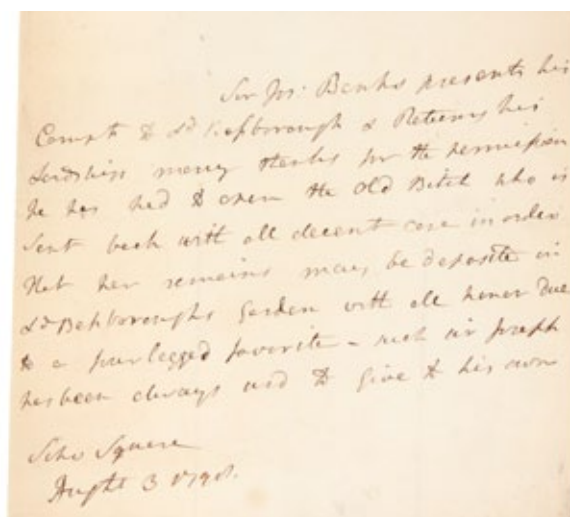 Sir Jos: Banks presents his
Compts to Ld Besborough & Returns his
Lordship many thanks for the permission
he has had to open the Old Bitch who is
Sent back with all decent care in order
that her remains may be deposite in
Ld Besboroughs Garden with all honor due
to a four legged favorite - such as Sir Joseph
has been always used to give to his own
Soho Square
Augst 3 1790